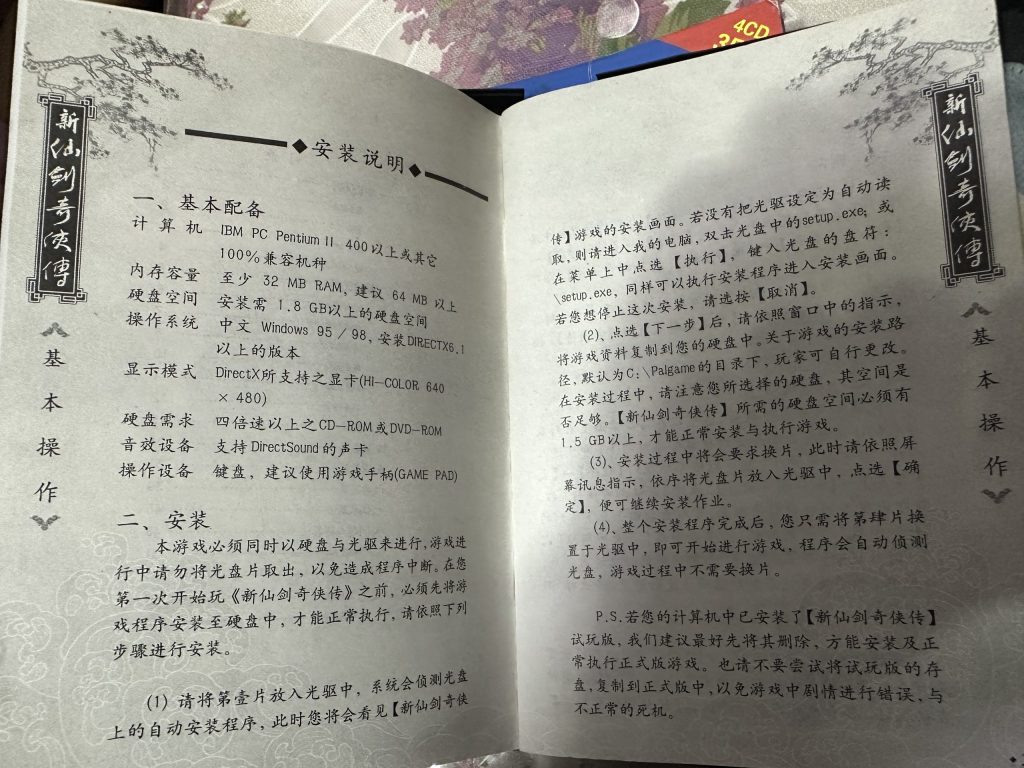 4CD
新仙剑奇侠傳
基本操作
安装说明
一、基本配备
计算机 IBM PC Pentium II 400以上或其它
100%兼容机种
内存容量 至少 32 MB RAM, 建议 64 MB 以上
硬盘空间 安装需 1.8 GB以上的硬盘空间
操作系统 中文 Windows 95 / 98, 安装DIRECTX6.1
以上的版本
显示模式 DirectX所支持之显卡(HI-COLOR 640
× 480)
硬盘需求 四倍速以上之CD-ROM或DVD-ROM
音效设备 支持DirectSound的声卡
操作设备 键盘, 建议使用游戏手柄(GAME PAD)
二、安装
本游戏必须同时以硬盘与光驱来进行,游戏进
行中请勿将光盘片取出, 以免造成程序中断。在您
第一次开始玩《新仙剑奇侠传》之前, 必须先将游
戏程序安装至硬盘中, 才能正常执行, 请依照下列
步骤进行安装。
(1) 请将第壹片放入光驱中, 系统会侦测光盘
上的自动安装程序, 此时您将会看见【新仙剑奇侠
传】游戏的安装画面。若没有把光驱设定为自动读
取, 则请进入我的电脑, 双击光盘中的setup.exe; 或
在菜单上中点选【执行】, 键入光盘的盘符:
\setup.exe, 同样可以执行安装程序进入安装画面。
若您想停止这次安装, 请选按【取消】。
(2)、点选【下一步】后, 请依照窗口中的指示,
将游戏资料复制到您的硬盘中。关于游戏的安装路
径, 默认为C:\Palgame的目录下, 玩家可自行更改。
在安装过程中, 请注意您所选择的硬盘, 其空间是
否足够。【新仙剑奇侠传】所需的硬盘空间必须有
1.5 GB以上, 才能正常安装与执行游戏。
(3)、安装过程中将会要求换片, 此时请依照屏
幕讯息指示, 依序将光盘片放入光驱中, 点选【确
定】, 便可继续安装作业。
(4)、整个安装程序完成后, 您只需将第肆片换
置于光驱中, 即可开始进行游戏, 程序会自动侦测
光盘, 游戏过程中不需要换片。
P.S.若您的计算机中已安装了【新仙剑奇侠传】
试玩版, 我们建议最好先将其删除, 方能安装及正
常执行正式版游戏。也请不要尝试将试玩版的存
盘, 复制到正式版中, 以免游戏中剧情进行错误, 与
不正常的死机。
新仙剑奇侠傳
基本操作